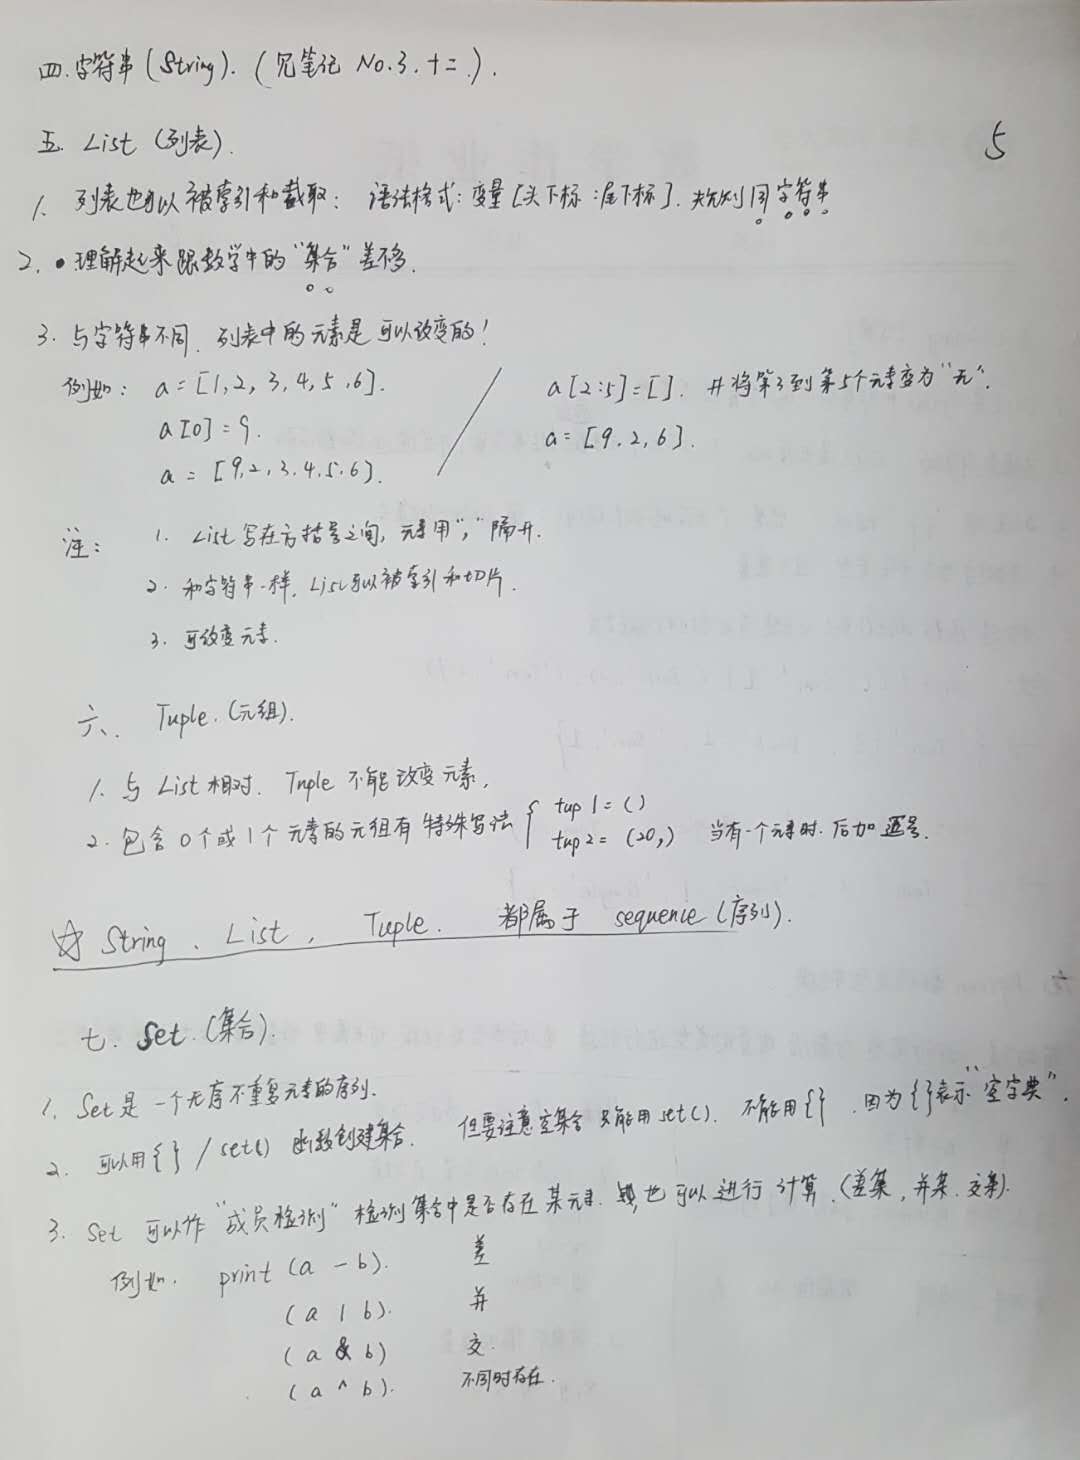 四.字符串(String).(见笔记 No.3.十二.).
5
五. List (列表).
1. 列表也可以被索引和截取: 语法格式:变量[头下标:尾下标]. 规则同字符串
2. •理解起来跟数学中的“集合”差不多.
3. 与字符串不同. 列表中的元素是可以改变的!
例如: a=[1,2,3,4,5,6].
a[0]=9.
a = [9,2,3,4,5,6].
a[2:5]=[]. 并将第3到第5个元素变为“无”.
a=[9.2,6].
注: 1. List 写在方括号之间, 元素用“,”隔开.
2. 和字符串一样, List可以被索引和切片.
3. 可改变元素.
六、 Tuple.(元组).
1. 与 List 相对. Tuple 不能改变元素.
2. 包含0个或1个元素的元组有特殊写法 { tup1=()
tup2= (20,) 当有一个元素时.后加逗号.
☆ String、List, Tuple. 都属于 sequence(序列).
七. Set.(集合).
1. Set是一个无序不重复元素的序列.
2. 可以用{}/set() 函数创建集合. 但要注意空集合只能用set(). 不能用{}.因为{}表示“空字典”.
3. Set 可以作“成员检测” 检测集合中是否存在某元素. 也可以进行计算.(差集,并集.交集).
例如. print (a-b). 差
(a|b). 并
(a&b) 交.
(a^b). 不同时存在.